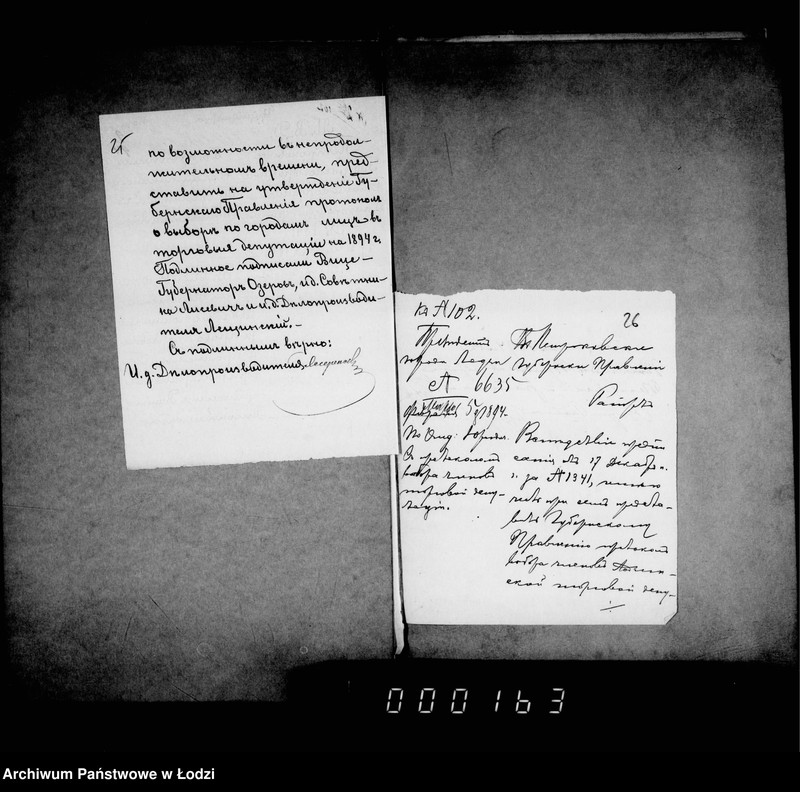 25
по возможности въ непродол-
жительномъ времени, пред-
ставить на утвержденіе Гу-
бернскаго Правленія протоколъ
о выборѣ по городамъ лицъ въ
торговыя депутаціи на 1894 г.
Подлинное подписали Вице-
Губернаторъ Озеровъ, и.д. Совѣтни-
ка Лисевичъ и и.д. Дѣлопроизводи-
теля Лещинскій.-
Съ подлиннымъ вѣрно:
И.д. Дѣлопроизводителя
26
Къ № 102.
Президентъ
города Лодзи
№ 6635
5 1894.
О протоколѣ
выбора членовъ
торговой депу-
таціи.
Въ Петроковское
Губернское Правленіе
Рапортъ
Вслѣдствіе предпи
санія отъ 17 Декабр.
г. за № 1341,
при семъ предста-
вить Губернскому
Правленію протоколъ
выбора членовъ Лодзин-
ской торговой депу-
000163
Archiwum Państwowe w Łodzi